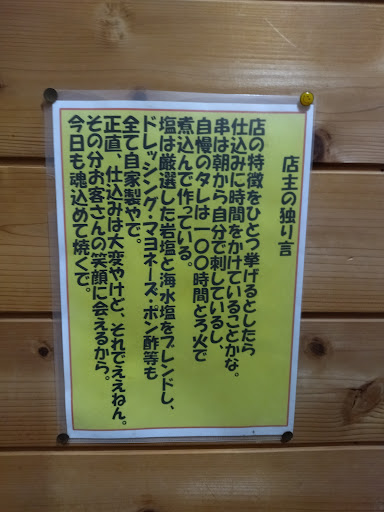 店主の独り言
店の特徴をひとつ挙げるとしたら
仕込みに時間をかけていることかな。
串は朝から自分で刺しているし、
自慢のタレは一〇〇時間とろ火で
煮込んで作っている。
塩は厳選した岩塩と海水塩をブレンドし、
ドレッシング・マヨネーズ・ポン酢等も
全て自家製やで。
正直、仕込みは大変やけど、それでええねん。
その分お客さんの笑顔に会えるから。
今日も魂込めて焼くで。